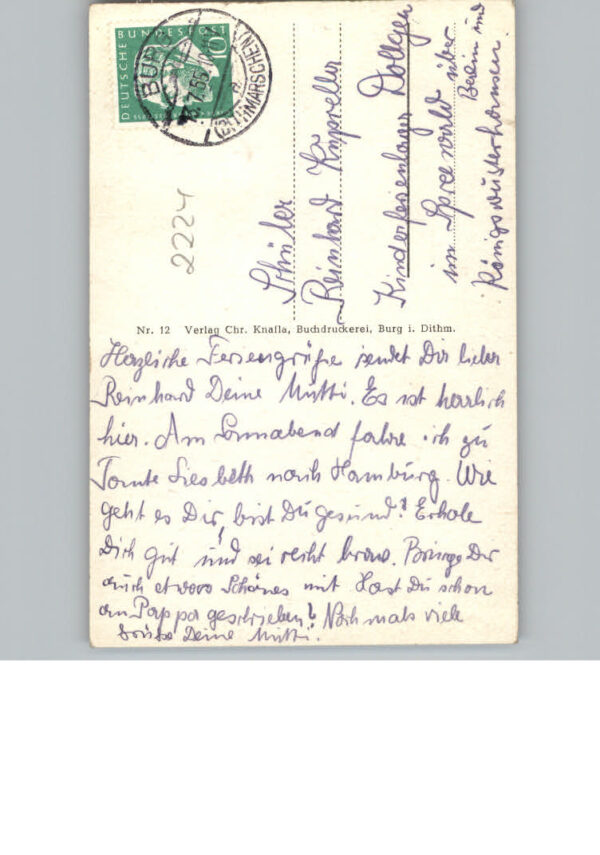 DEUTSCHE BUNDESPOST
10
BURG
(DITHMARSCHEN)
2224
Schüler
Reinhard
Kinderferienlager Dollgen
im Spreewald über
Berlin und
Königswusterhausen
Nr. 12 Verlag Chr. Knalla, Buchdruckerei, Burg i. Dithm.
Herzliche Feriengrüße sendet Dir lieber
Reinhard Deine Mutti. Es ist herrlich
hier. Am Sonnabend fahre ich zu
Tante Liesbeth nach Hamburg. Wie
geht es Dir, bist Du gesund? Erhole
Dich gut und sei recht brav. Bringe Dir
auch etwas Schönes mit. Hast Du schon
an Pappa geschrieben? Nochmals viele
Grüße Deine Mutti.